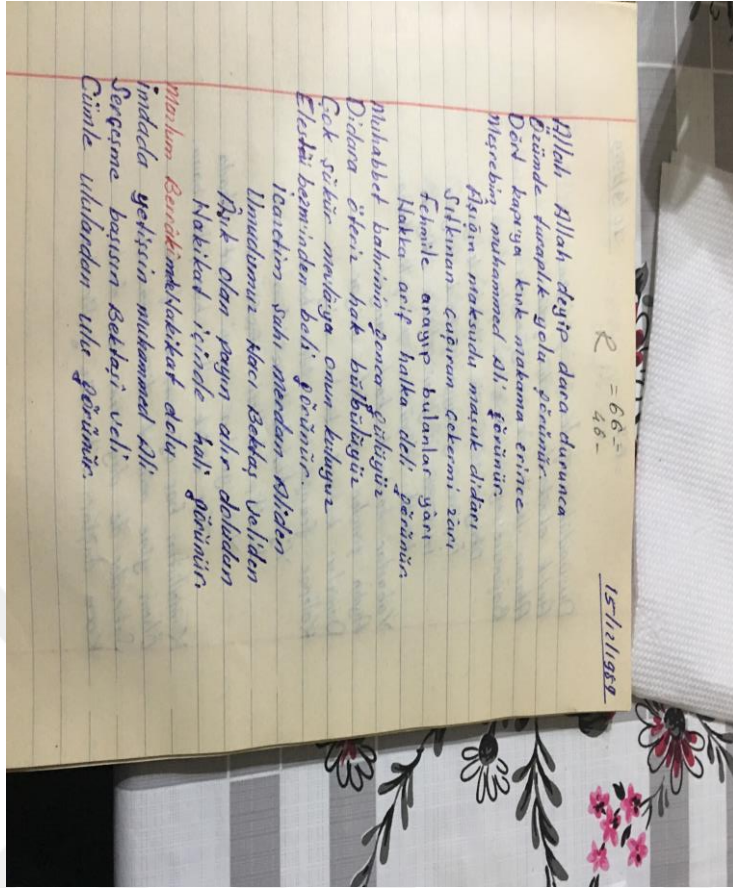 15/12/1989
R = 66 =
46 -
Allah Allah deyip dara durunca
Özümde turaplık yolu görünür.
Dört kapıya kırk makama erince
Meşrebim muhammed Ali görünür.
Aşığın maksudu maşuk didarı
Sıtkınan çağıran çekermi zarı
Fehmile arayıp bulanlar yarı
Hakka arif halka deli görünür.
Muhabbet bahrinin gonca gülüyüz
Didara öteriz hak bülbülüyüz
Çok şükür mevlaya onun kuluyuz
Elestü bezminden beli görünür.
icazetim Şahı merdan Aliden
Umudumuz Hacı Bektaş Veliden
Aşık olan payın alır doludan
Hakikat içinde hali görünür.
Mazlum hakikat dolu
imdada yetişsin muhammed Ali
Serçeşme başısın Bektaşi Veli
Cümle ululardan ulu görünür.